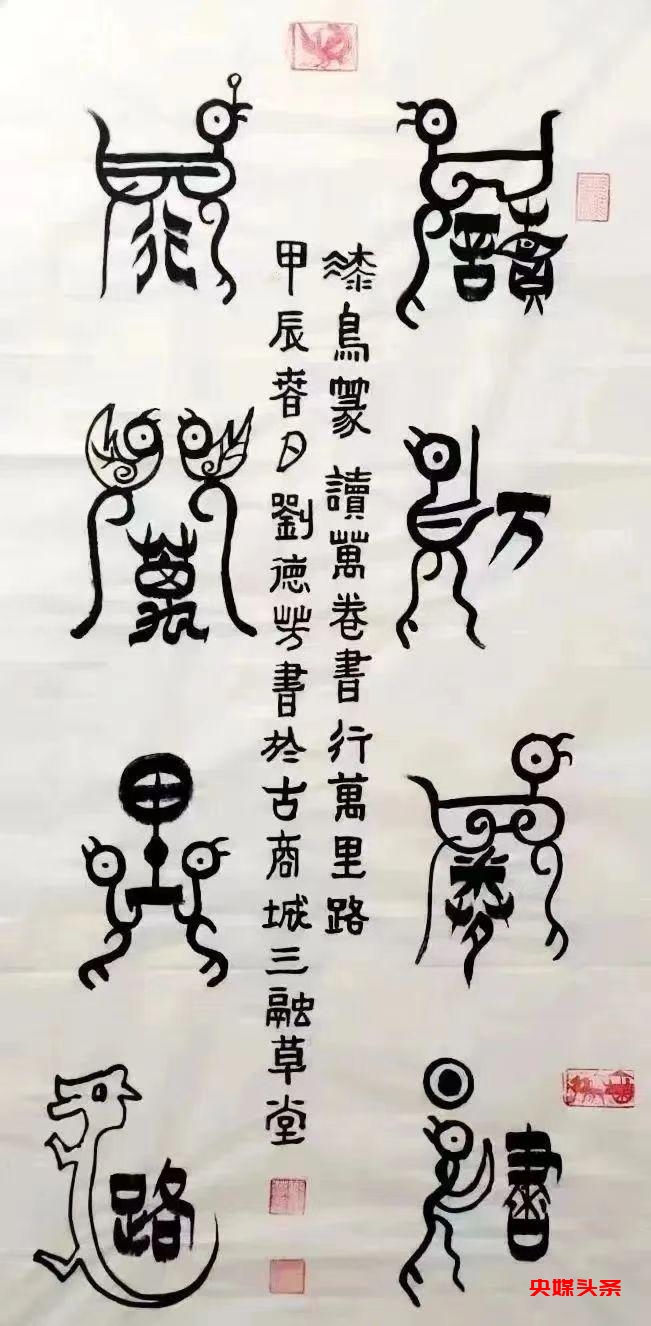 讀
万
卷
書
行
萬
里
路
漆鳥篆 讀萬卷書行萬里路
甲辰春月劉德芳書於古商城三融草堂
央媒头条